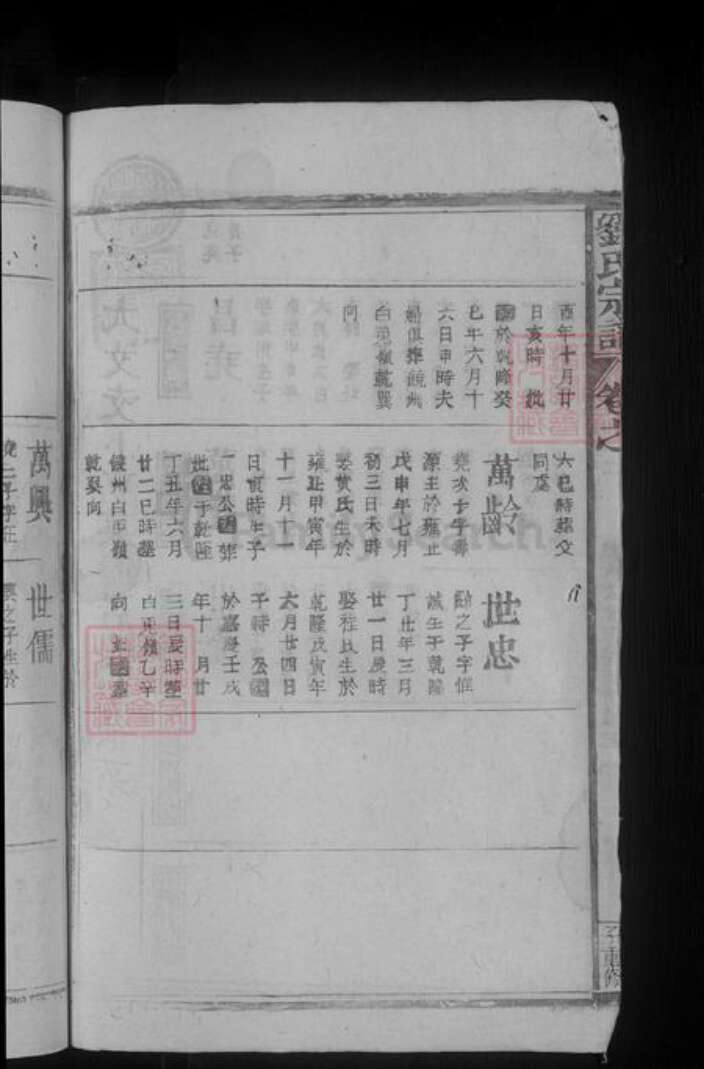 劉氏宗譜
卷之
酉年十月廿
日亥時 妣
於乾隆癸
巳年六月十
六日申時夫
婦俱葬
白兎嶺乾巽
向
六巳時葬父
同處
萬齡
堯次子字壽
源生於雍正
戊申年七月
初三日未時
娶黄氏生於
雍正甲寅年
十一月十一
日寅時生子
一忠公 葬
妣 于乾隆
丁丑年六月
廿二巳時葬
儀州白兎嶺
乾巽向
世忠
齡之子字惟
誠生于乾隆
丁丑年三月
廿一日辰時
娶程氏生於
乾隆戊寅年
六月廿四日
子時 公
於嘉慶壬戌
年十 月廿
三日辰時葬
白兎嶺乙辛
向 妣
萬興
世儒
之子生於
重修